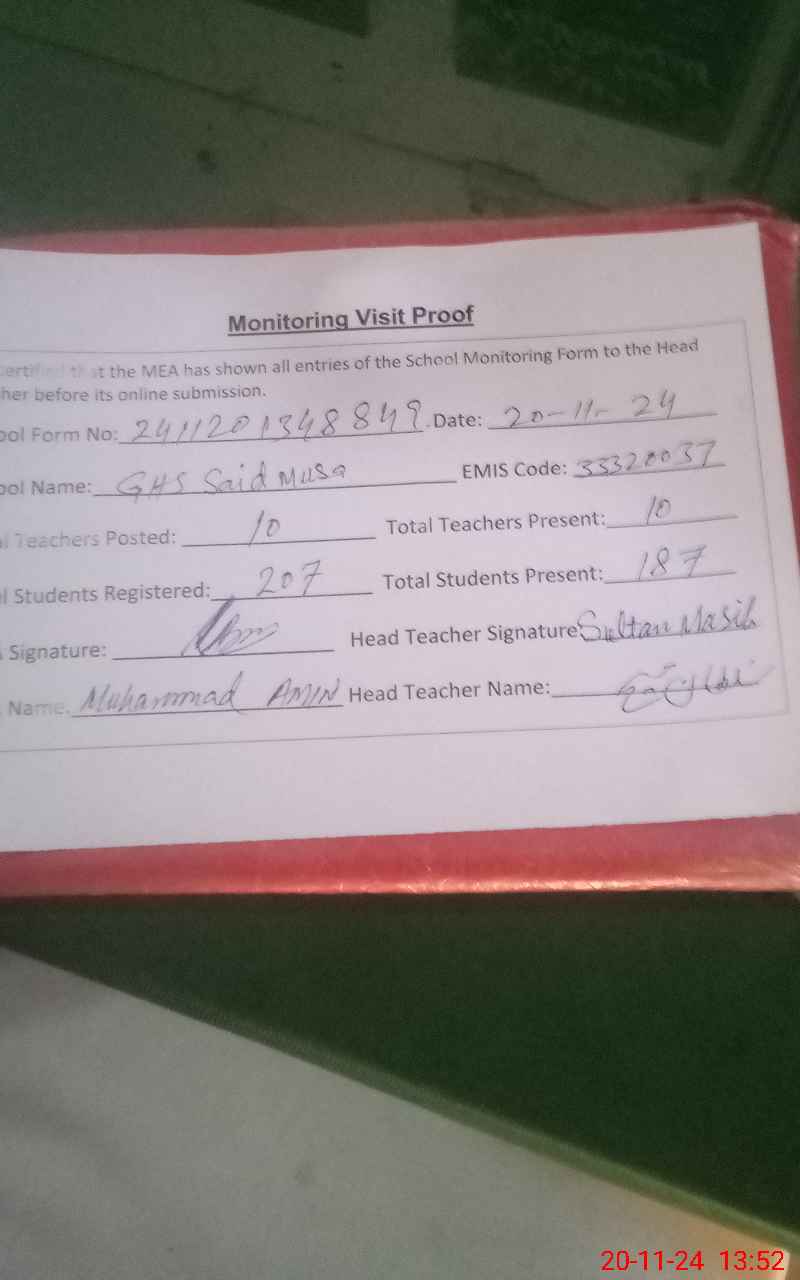 Monitoring Visit Proof
certified that the MEA has shown all entries of the School Monitoring Form to the Head
her before its online submission.
ool Form No: 2411201348849. Date: 20-11-24
ool Name: GHS Said Musa EMIS Code: 33320037
l Teachers Posted: 10 Total Teachers Present: 10
l Students Registered: 207 Total Students Present: 187
Signature: Head Teacher Signature Sultan Masih
Name. Muhammad AMIN Head Teacher Name:
20-11-24 13:52